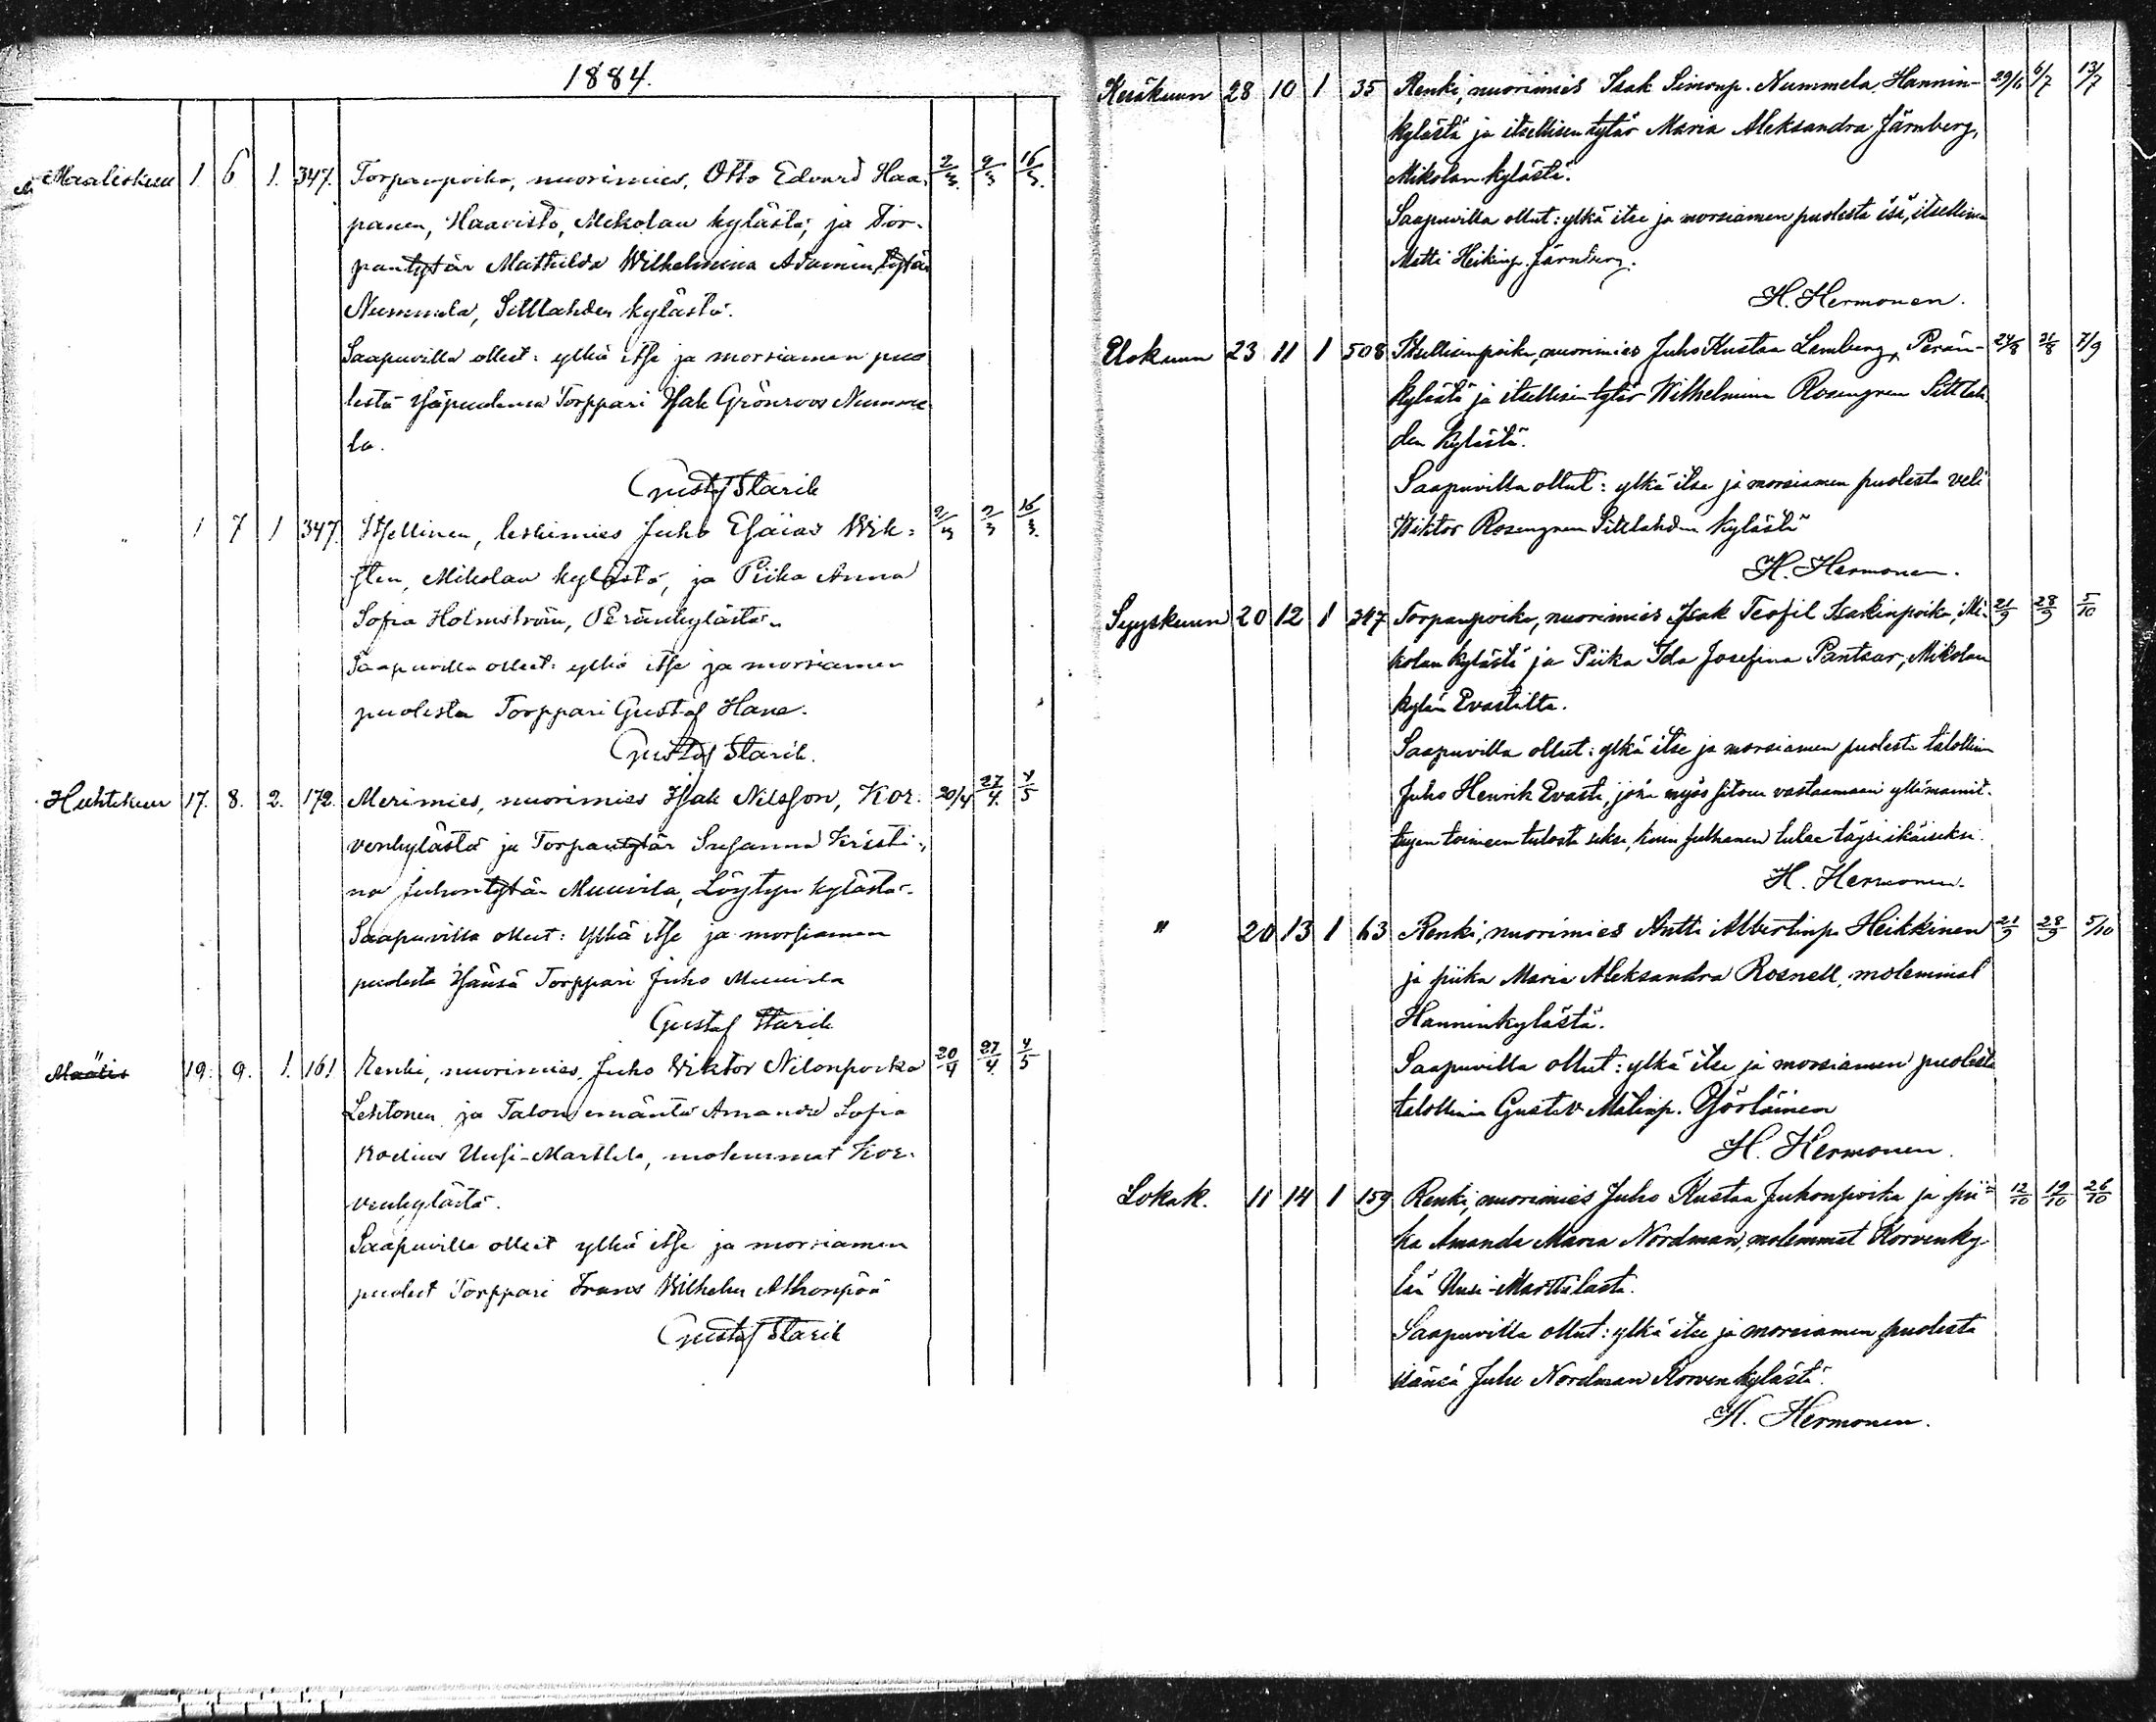 1884.
Maaliskuu 1. 6 1. 347. Torpanpoika, nuorimies, Otto Edvard Haa- 2/3. 9/3 16/3.
panen, Haavisto, Mikolan kylästä, ja Tor-
pantytär Mathilda Wilhelmina Adamin tytär
Nummela, Sittlahden kylästä.
Saapuvilla olleet: ylkä itse ja morsiamen puo
lesta Isäpuolensa Torppari Isak Grönroos Numme
la.
Gustaf Starck
" 1 7 1 347. Itsellinen, leskimies Juho Esaias Wik- 2/3 9/3 16/3.
sten, Mikolan kylästä, ja Piika Anna
Sofia Holmström, Peränkylästä.
Saapuvilla olleet: ylkä itse ja morsiamen
puolesta Torppari Gustaf Hane.
Gustaf Starck.
Huhtikuu 17. 8. 2. 172. Merimies, nuorimies Isak Nilsson, Kor- 20/4 27/4. 4/5
venkylästä ja Torpantytär Susanna Kristi-
na Juhontytär Muurila, Löytyn kylästä.
Saapuvilla olleet: Ylkä itse ja morsiamen
puolesta Isänsä Torppari Juho Muurila
Gustaf Starck
Maalis 19. 9. 1. 161 Renki, nuorimies, Juho Wiktor Nilonpoika 20/4 27/4. 4/5
Lehtonen ja Talon emäntä Amanda Sofia
Uusi-Marttila, molemmat Kor-
venkylästä.
Saapuvilla olleet ylkä itse ja morsiamen
puolest Torppari Frans Wilhelm
Gustaf Starck
Kesäkuun 28 10 1 35 Renki, nuorimies Isak Simonp. Nummela, Hannin- 29/6 6/7 13/7
kylästä ja itsellisen tytär Maria Aleksandra Järnberg,
Mikolan kylästä.
Saapuvilla ollut: ylkä itse ja morsiamen puolesta isä, itsellinen
Matti Heikinp. Järnberg.
H. Hermonen.
Elokuun 23 11 1 508 Itsellisenpoika, nuorimies Juho Kustaa Lemberg, Perän- 24/8 31/8 7/9
kylästä ja itsellisen tytär Wilhelmina Rosengren Sittlah
den kylästä.
Saapuvilla ollut: ylkä itse ja morsiamen puolesta veli
Wiktor Rosengren Sittlahden kylästä
H. Hermonen.
Syyskuun 20 12 1 347 Torpanpoika, nuorimies Isak Teofil Isakinpoika, Mi- 21/9 28/9 5/10
kolan kylästä ja Piika Ida Josefina Pantsar, Mikolan
kylän Evastilta.
Saapuvilla ollut: ylkä itse ja morsiamen puolesta talollinen
Juho Henrik Evasti, joka myös sitoun vastaamaan yllämainit-
tujen toimeen tulosta siksi, kuin sulhanen tulee täysi ikäiseksi.
H. Hermonen.
" 20 13 1 63 Renki, nuorimies Antti Albertinp. Heikkinen 21/9 28/9 5/10
ja piika Maria Aleksandra Rosnell, molemmat
Hanninkylästä.
Saapuvilla ollut: ylkä itse ja morsiamen puolesta
talollinen Gustav Matinp. Yöröläinen
H. Hermonen.
Lokak. 11 14 1 159 Renki, nuorimies Juho Kustaa Juhonpoika ja pii- 12/10 19/10 26/10
ka Amanda Maria Nordman, molemmat Korvenky-
län Uusi-Marttilasta.
Saapuvilla ollut: ylkä itse ja morsiamen puolesta
isänsä Juho Nordman Korvenkylästä.
H. Hermonen.